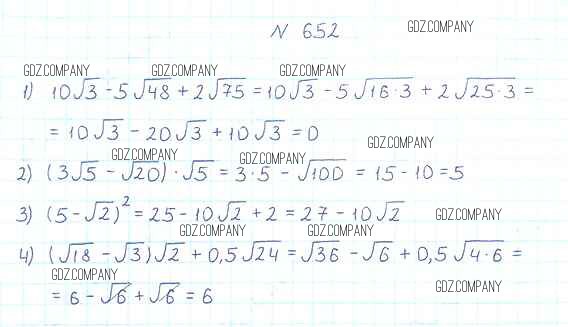 N 652
GDZ.COMPANY
GDZ.COMPANY GDZ.COMPANY GDZ.COMPANY
1) 10√3 - 5√48 + 2√75 = 10√3 - 5√16·3 + 2√25·3 =
= 10√3 - 20√3 + 10√3 = 0
GDZ.COMPANY
GDZ.COMPANY GDZ.COMPANY
2) (3√5 - √20)·√5 = 3·5 - √100 = 15 - 10 = 5
3) (5 - √2)² = 25 - 10√2 + 2 = 27 - 10√2
GDZ.COMPANY
GDZ.COMPANY GDZ.COMPANY
4) (√18 - √3)√2 + 0,5√24 = √36 - √6 + 0,5√4·6 =
GDZ.COMPANY
= 6 - √6 + √6 = 6
GDZ.COMPANY